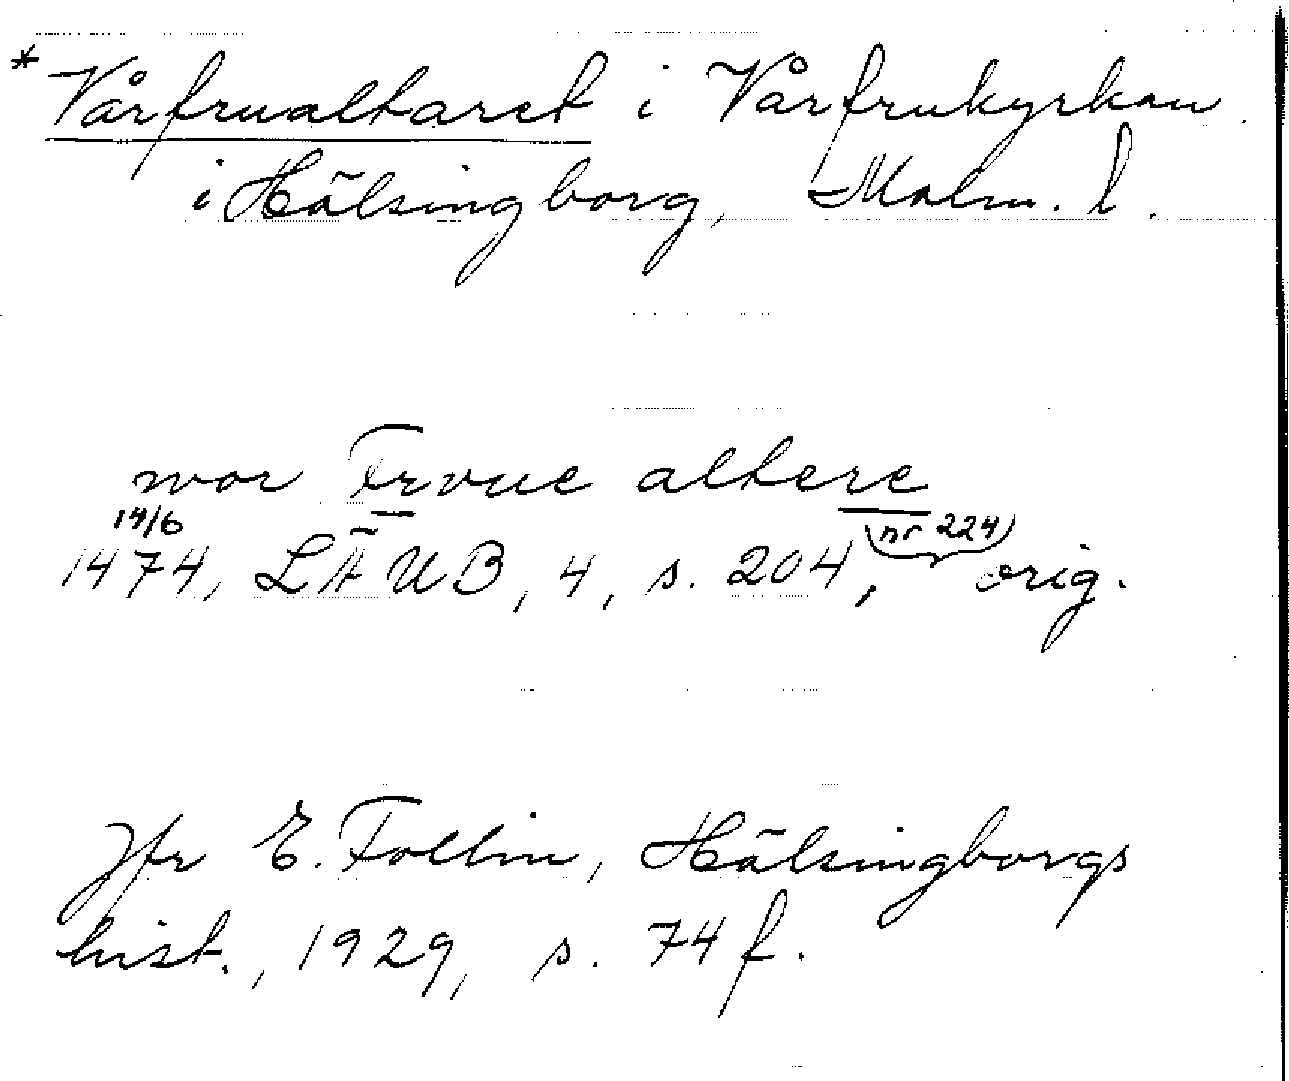 * Vårfrualtaret i Vårfrukyrkan
i Hälsingborg, Malm. l.
wor Frvue altere
14/6
1474, LÄUB, 4, s. 204, (nr 224) orig.
Jfr E. Follin, Hälsingborgs
hist., 1929, s. 74 f.